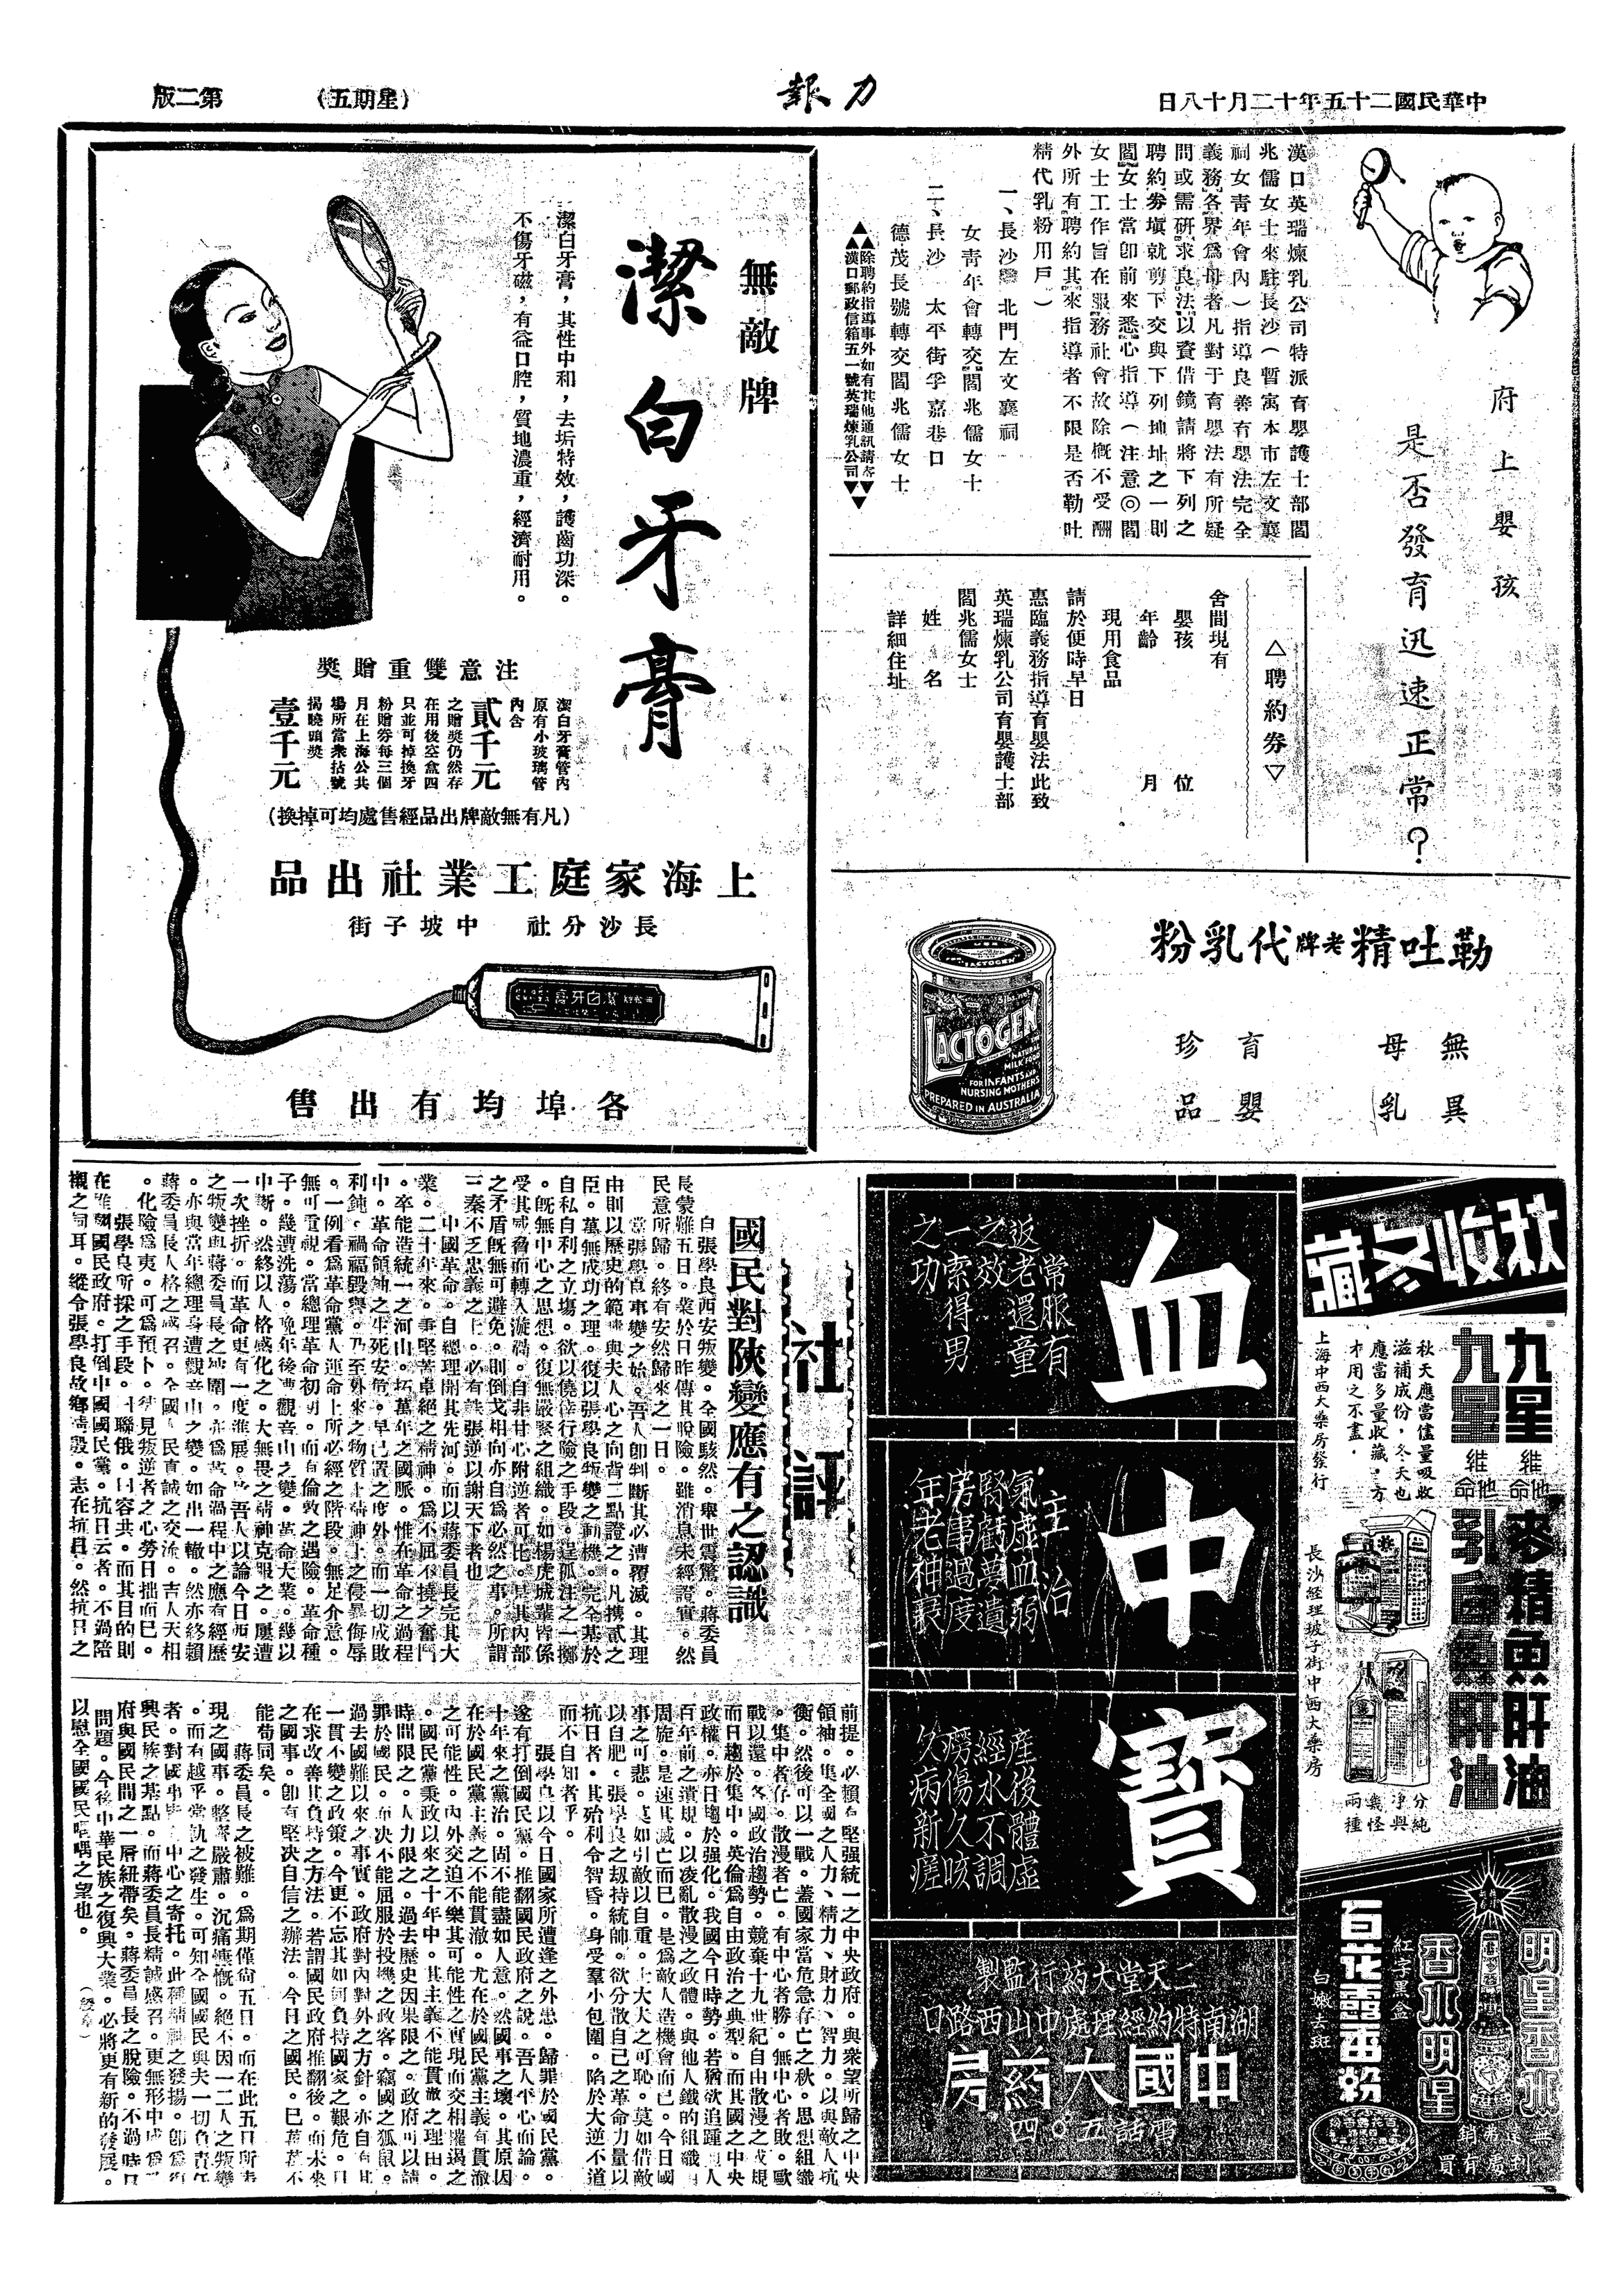 中華民國二十五年十二月十八日
力報
(星期五)
第二版
府上嬰孩
是否發育迅速正常？
漢口英瑞煉乳公司特派育嬰護士部閻
兆儒女士來駐長沙（暫寓本市左文襄
祠女青年會內）指導良善育嬰法完全
義務各界爲母者凡對于育嬰法有所疑
問或需研求良法以資借鏡請將下列之
聘約券塡就剪下交與下列地址之一則
閻女士當卽前來悉心指導（注意◎閻
女士工作旨在服務社會故除槪不受酬
外所有聘約其來指導者不限是否勒吐
精代乳粉用戶）
一、長沙 北門左文襄祠
女靑年會轉交閻兆儒女士
二、長沙 太平街孚嘉巷口
德茂長號轉交閻兆儒女士
▲▲除聘約指導事外如有其他通訊請寄▼▼
▲漢口郵政信箱五一號英瑞煉乳公司▼
△聘約券▽
舍間現有
嬰孩 位
年齡 月
現用食品
請於便時早日
惠臨義務指導育嬰法此致
英瑞煉乳公司育嬰護士部
閻兆儒女士
姓名
詳細住址
勒吐精老牌代乳粉
無異
母乳
育嬰
珍品
LACTOGEN
LACTOGEN
NATURAL
MILK FOOD
FOR INFANTS AND
NURSING MOTHERS
PREPARED IN AUSTRALIA
無敵牌
潔白牙膏
潔白牙膏，其性中和，去垢特效，護齒功深。
不傷牙磁，有益口腔，質地濃重，經濟耐用。
注意雙重贈獎
潔白牙膏管內
原有小玻璃管
內含
貳千元
之贈獎仍然存
在用後空盒四
只並可掉換牙
粉贈券每三個
月在上海公共
場所當衆拈號
揭曉頭獎
壹千元
(凡有無敵牌出品經售處均可掉換)
上海家庭工業社出品
長沙分社 中坡子街
潔白牙膏
各埠均有出售
秋收冬藏
九星維他命麥精魚肝油
九星維他命乳白魚肝油
秋天應當儘量吸收
滋補成份，冬天也
應當多量收藏，方
才用之不盡。
上海中西大藥房發行
長沙經理坡子街中西大藥房
分純
淨與
兩種
明星香水
香水明星
百花露面粉
紅字黑盒
白嫩去斑
到處有買
血中寶
常服有
返老還童
之效
一索得男
之功
主治
氣虛血弱
腎虧夢遺
房事過度
年老神衰
產後體虛
經水不調
癆傷久咳
久病新瘥
二天堂大葯行監製
湖南特約經理處中山西路口
中國大葯房
電話五〇四
社評
國民對陝變應有之認識
自張學良西安叛變。全國駭然。舉世震驚。蔣委員
長蒙難五日。業於日昨傳其脫險。雖消息未經證實。然
民意所歸。終有安然歸來之一日。
當張學良事變之始。吾人卽判斷其必遭覆滅。其理
由則以歷史的範疇與夫人心之向背二點證之。凡携貳之
臣。蓋無成功之理。復以張學良叛變之動機。完全基於
自私自利之立塲。欲以僥倖行險之手段。逞孤注之一擲
。旣無中心之思想。復無嚴緊之組織。如楊虎城輩皆係
受其威脅而轉入漩渦。自非甘心附逆者可比。是其內部
之矛盾旣無可避免。則倒戈相向亦自爲必然之事。所謂
三秦不乏忠義之士。必有誅張逆以謝天下者也。
中國革命。自總理開其先河。而以蔣委員長完其大
業。二十年來。秉堅苦卓絕之精神。爲不屈不撓之奮鬥
。卒能造統一之河山。拓萬年之國脈。惟在革命之過程
中。革命領袖之生死安危。早已置之度外。而一切成敗
利鈍。禍福毀譽。乃至外來之物質上精神上之侵暴侮辱
。一例看爲革命黨人運命上所必經之階段。無足介意。
無可重視。當總理革命初期。而有倫敦之遇險。革命種
子。幾遭洗蕩。晚年後遭觀音山之變。革命大業。幾以
中斷。然終以人格感化之。大無畏之精神克服之。屢遭
一次挫折。而革命更有一度進展。故吾人以論今日西安
之叛變與蔣委員長之被圍。亦爲革命過程中之應有經歷
。亦與當年總理身遭觀音山之變。如出一轍。然亦終賴
蔣委員長人格之感召。全國人民眞誠之交流。吉人天相
。化險爲夷。可爲預卜。徒見叛逆者之心勞日拙而已。
張學良所採之手段。曰聯俄。曰容共。而其目的則
在推翻國民政府。打倒中國國民黨。抗日云者。不過陪
襯之詞耳。縱令張學良故鄉情殷。志在抗日。然抗日之
前提。必賴有堅强統一之中央政府。與衆望所歸之中央
領袖。集全國之人力、精力、財力、智力。以與敵人抗
衡。然後可以一戰。蓋國家當危急存亡之秋。思想組織
。集中者存。散漫者亡。有中心者勝。無中心者敗。歐
戰以還。各國政治趨勢。競棄十九世紀自由散漫之成規
而日趨於集中。英倫爲自由政治之典型。而其國之中央
政權。亦日趨於强化。我國今日時勢。若猶欲追踵前人
百年前之潰規。以凌亂散漫之政體。與他人鐵的組織相
周旋。是速其滅亡而已。是爲敵人造機會而已。今日國
事之可悲。莫如引敵以自重。士大夫之可恥。莫如借敵
以自肥。張學良之刼持統帥。欲分散自己之革命力量以
抗日者。其殆利令智昏。身受羣小包圍。陷於大逆不道
而不自知者乎。
張學良以今日國家所遭逢之外患。歸罪於國民黨。
遂有打倒國民黨。推翻國民政府之說。吾人平心而論。
十年來之黨治。固不能盡如人意。然國事之壞。其原因
在於國民黨主義之不能貫澈。尤在於國民黨主義有貫澈
之可能性。內外交迫不樂其可能性之實現而交相摧遏之
。國民黨秉政以來之十年中。其主義不能貫澈之理由。
時間限之。人力限之。過去歷史因果限之。政府可以請
罪於國民。而決不能屈服於投機之政客。竊國之狐鼠。
過去國難以來之事實。政府對內對外之方針。亦自有其
一貫不變之政策。今更不忘其如何負持國家之艱危。日
在求改善其負持之方法。若謂國民政府推翻後。而未來
之國事。卽有堅决自信之辦法。今日之國民。已萬萬不
能苟同矣。
蔣委員長之被難。爲期僅尙五日。而在此五日所表
現之國事。整齊嚴肅。沉痛慷慨。絕不因一二人之叛變
。而有越乎常軌之發生。可知全國國民與夫一切負責任
者。對國事皆有中心之寄托。此種精神之發揚。卽爲復
興民族之基點。而蔣委員長精誠感召。更無形中成爲政
府與國民間之一層紐帶矣。蔣委員長之脫險。不過時日
問題。今後中華民族之復興大業。必將更有新的發展。
以慰全國國民喁喁之望也。